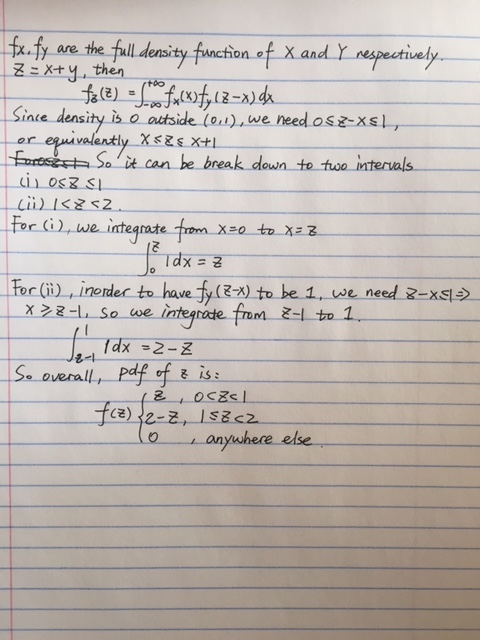 fx, fy are the full density function of X and Y respectively.
Z = x+y, then
f_z(z) = ∫_{-∞}^{+∞} f_x(x) f_y(z-x) dx
Since density is 0 outside (0,1), we need 0≤z-x≤1,
or equivalently x≤z≤x+1
So it can be break down to two intervals
(i) 0≤z≤1
(ii) 1<z<2.
For (i), we integrate from x=0 to x=z
∫_0^z 1dx = z
For (ii), inorder to have f_y(z-x) to be 1, we need z-x≤1 ⇒
x≥z-1, so we integrate from z-1 to 1.
∫_{z-1}^1 1dx = 2-z
So overall, pdf of z is:
z, 0<z<1
f(z) { 2-z, 1≤z<2
0, anywhere else.